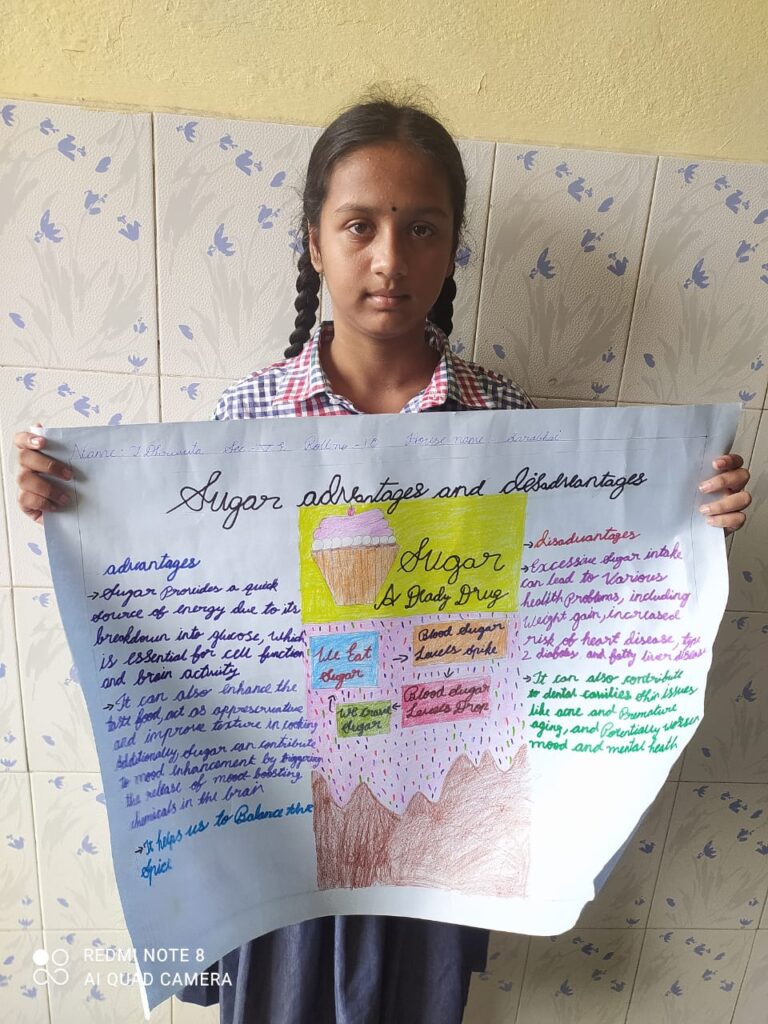 Name: Sec Roll no - House name:
Sugar advantages and disadvantages
advantages
→ Sugar Provides a quick
source of energy due to its
breakdown into glucose, which
is essential for cell function
and brain activity
→ It can also enhance the
taste food, act as appreservative
and improve texture in cooking
Additionally, sugar can contribute
to mood enhancement by triggering
the release of mood boosting
chemicals in the brain
→ It helps us to Balance the
Spice
Sugar
A Deadly Drug
We Eat
Sugar
Blood Sugar
Levels Spike
Blood Sugar
Levels Drop
We Crave
Sugar
→ disadvantages
→ Excessive sugar intake
can lead to Various
health Problems, including
Weight gain, increased
risk of heart disease, type
2 diabetes and fatty liver disease
→ It can also contribute
to dental skin issues
like acne and Premature
aging, and Potentially worsen
mood and mental health
REDMI NOTE 8
AI QUAD CAMERA